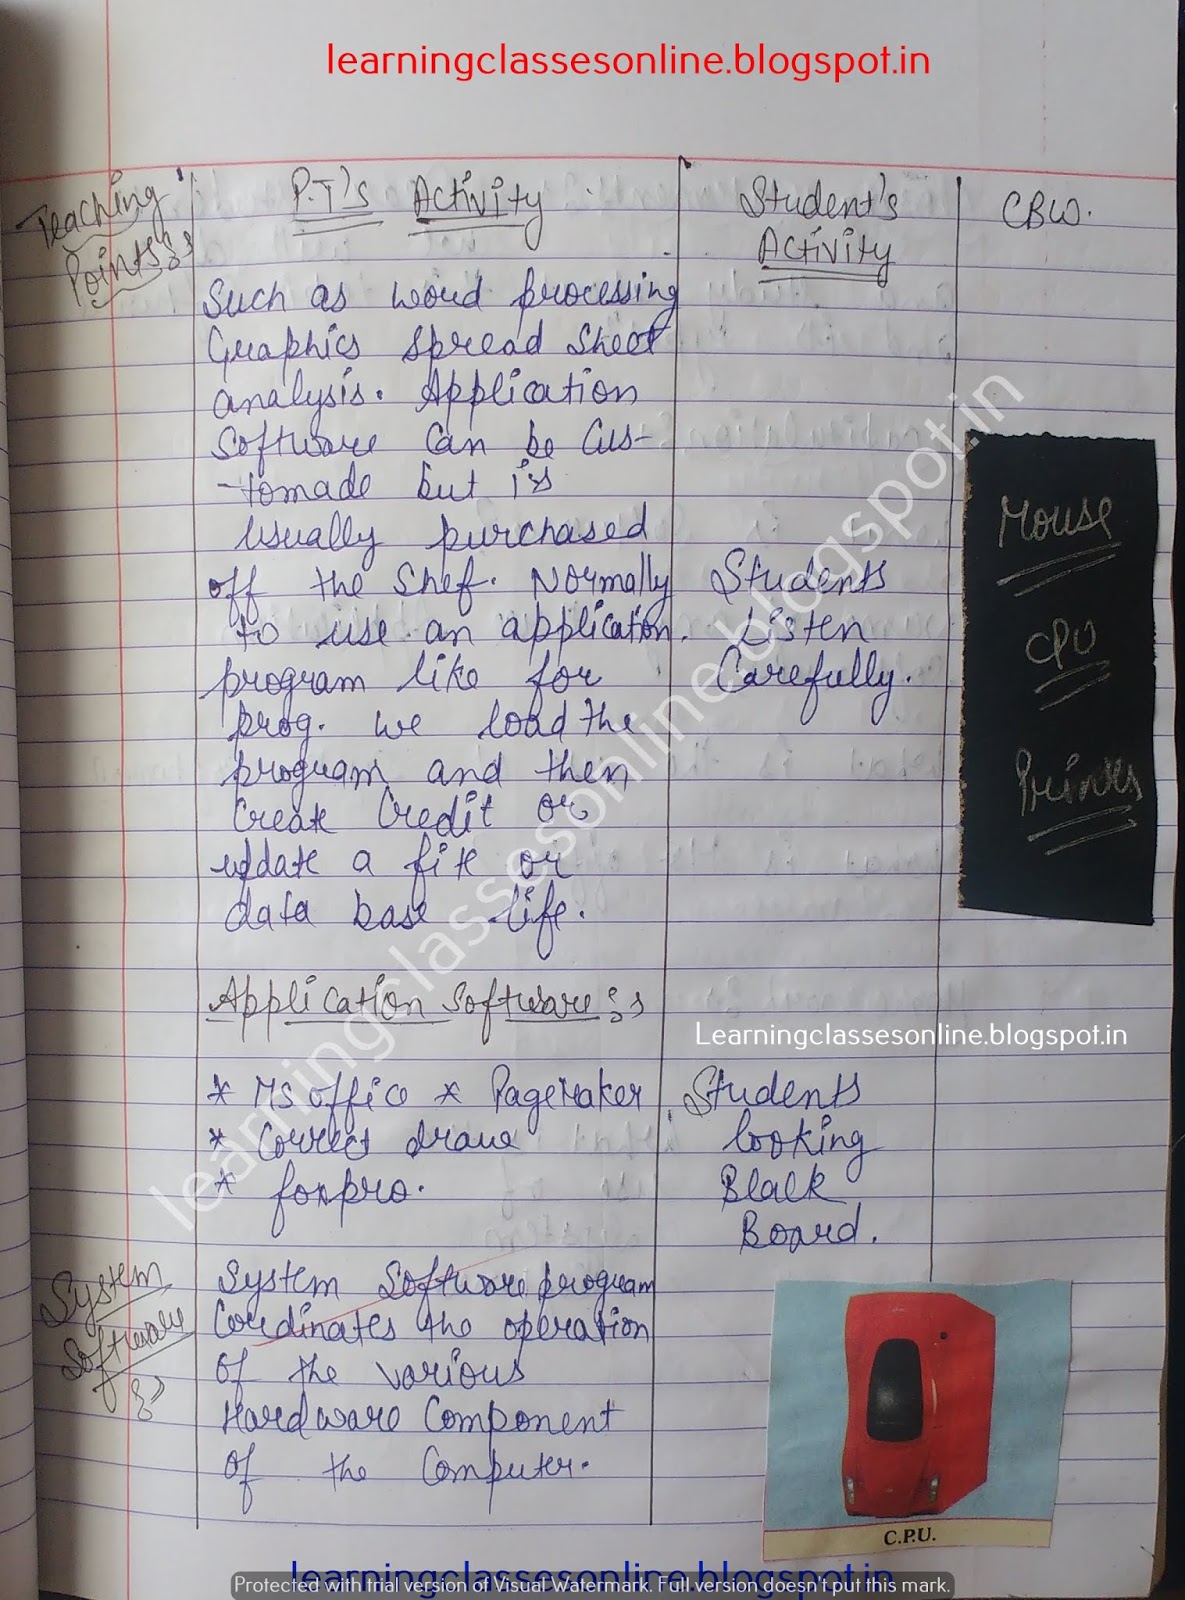 learningclassesonline.blogspot.in
Teaching
Points::
P.T's Activity
Student's
Activity
CBW.
Such as word processing
Graphics Spread Sheet
analysis. Application
Software Can be Cus-
-tomade but is
Usually purchased
off the Shef. Normally
to use an application
program like for
prog. we load the
program and then
Create Credit or
update a file or
data base life.
Students
Listen
Carefully.
Mouse
CPU
Printer
learningclassesonline.blogspot.in
Application Software::
Learningclassesonline.blogspot.in
* MS office * PageMaker
* Correct draw
* foxpro.
Students
looking
Black
Board.
System
Software
:
System Software program
Cordinates the operation
of the various
Hardware Component
of the Computer.
C.P.U.
learningclassesonline.blogspot.in
Protected with trial version of Visual Watermark. Full version doesn't put this mark.